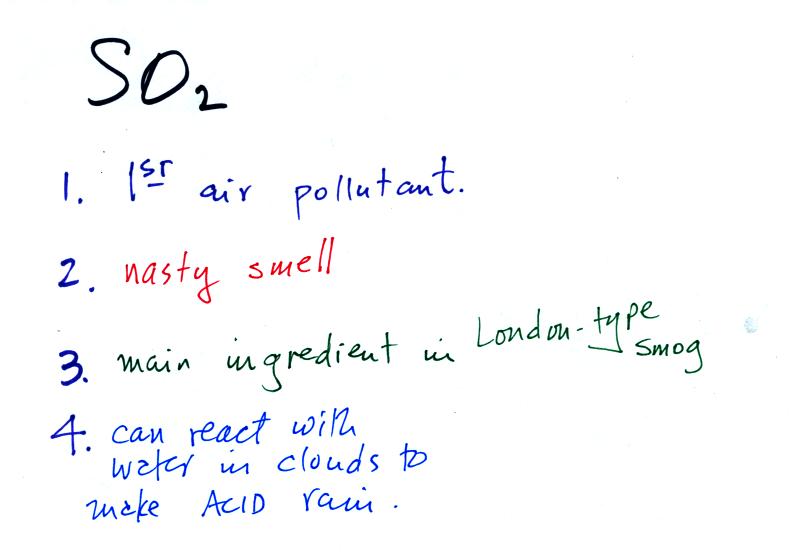 SO₂
1. 1st air pollutant.
2. nasty smell
3. main ingredient in London-type
smog
4. can react with
water in clouds to
make ACID rain.